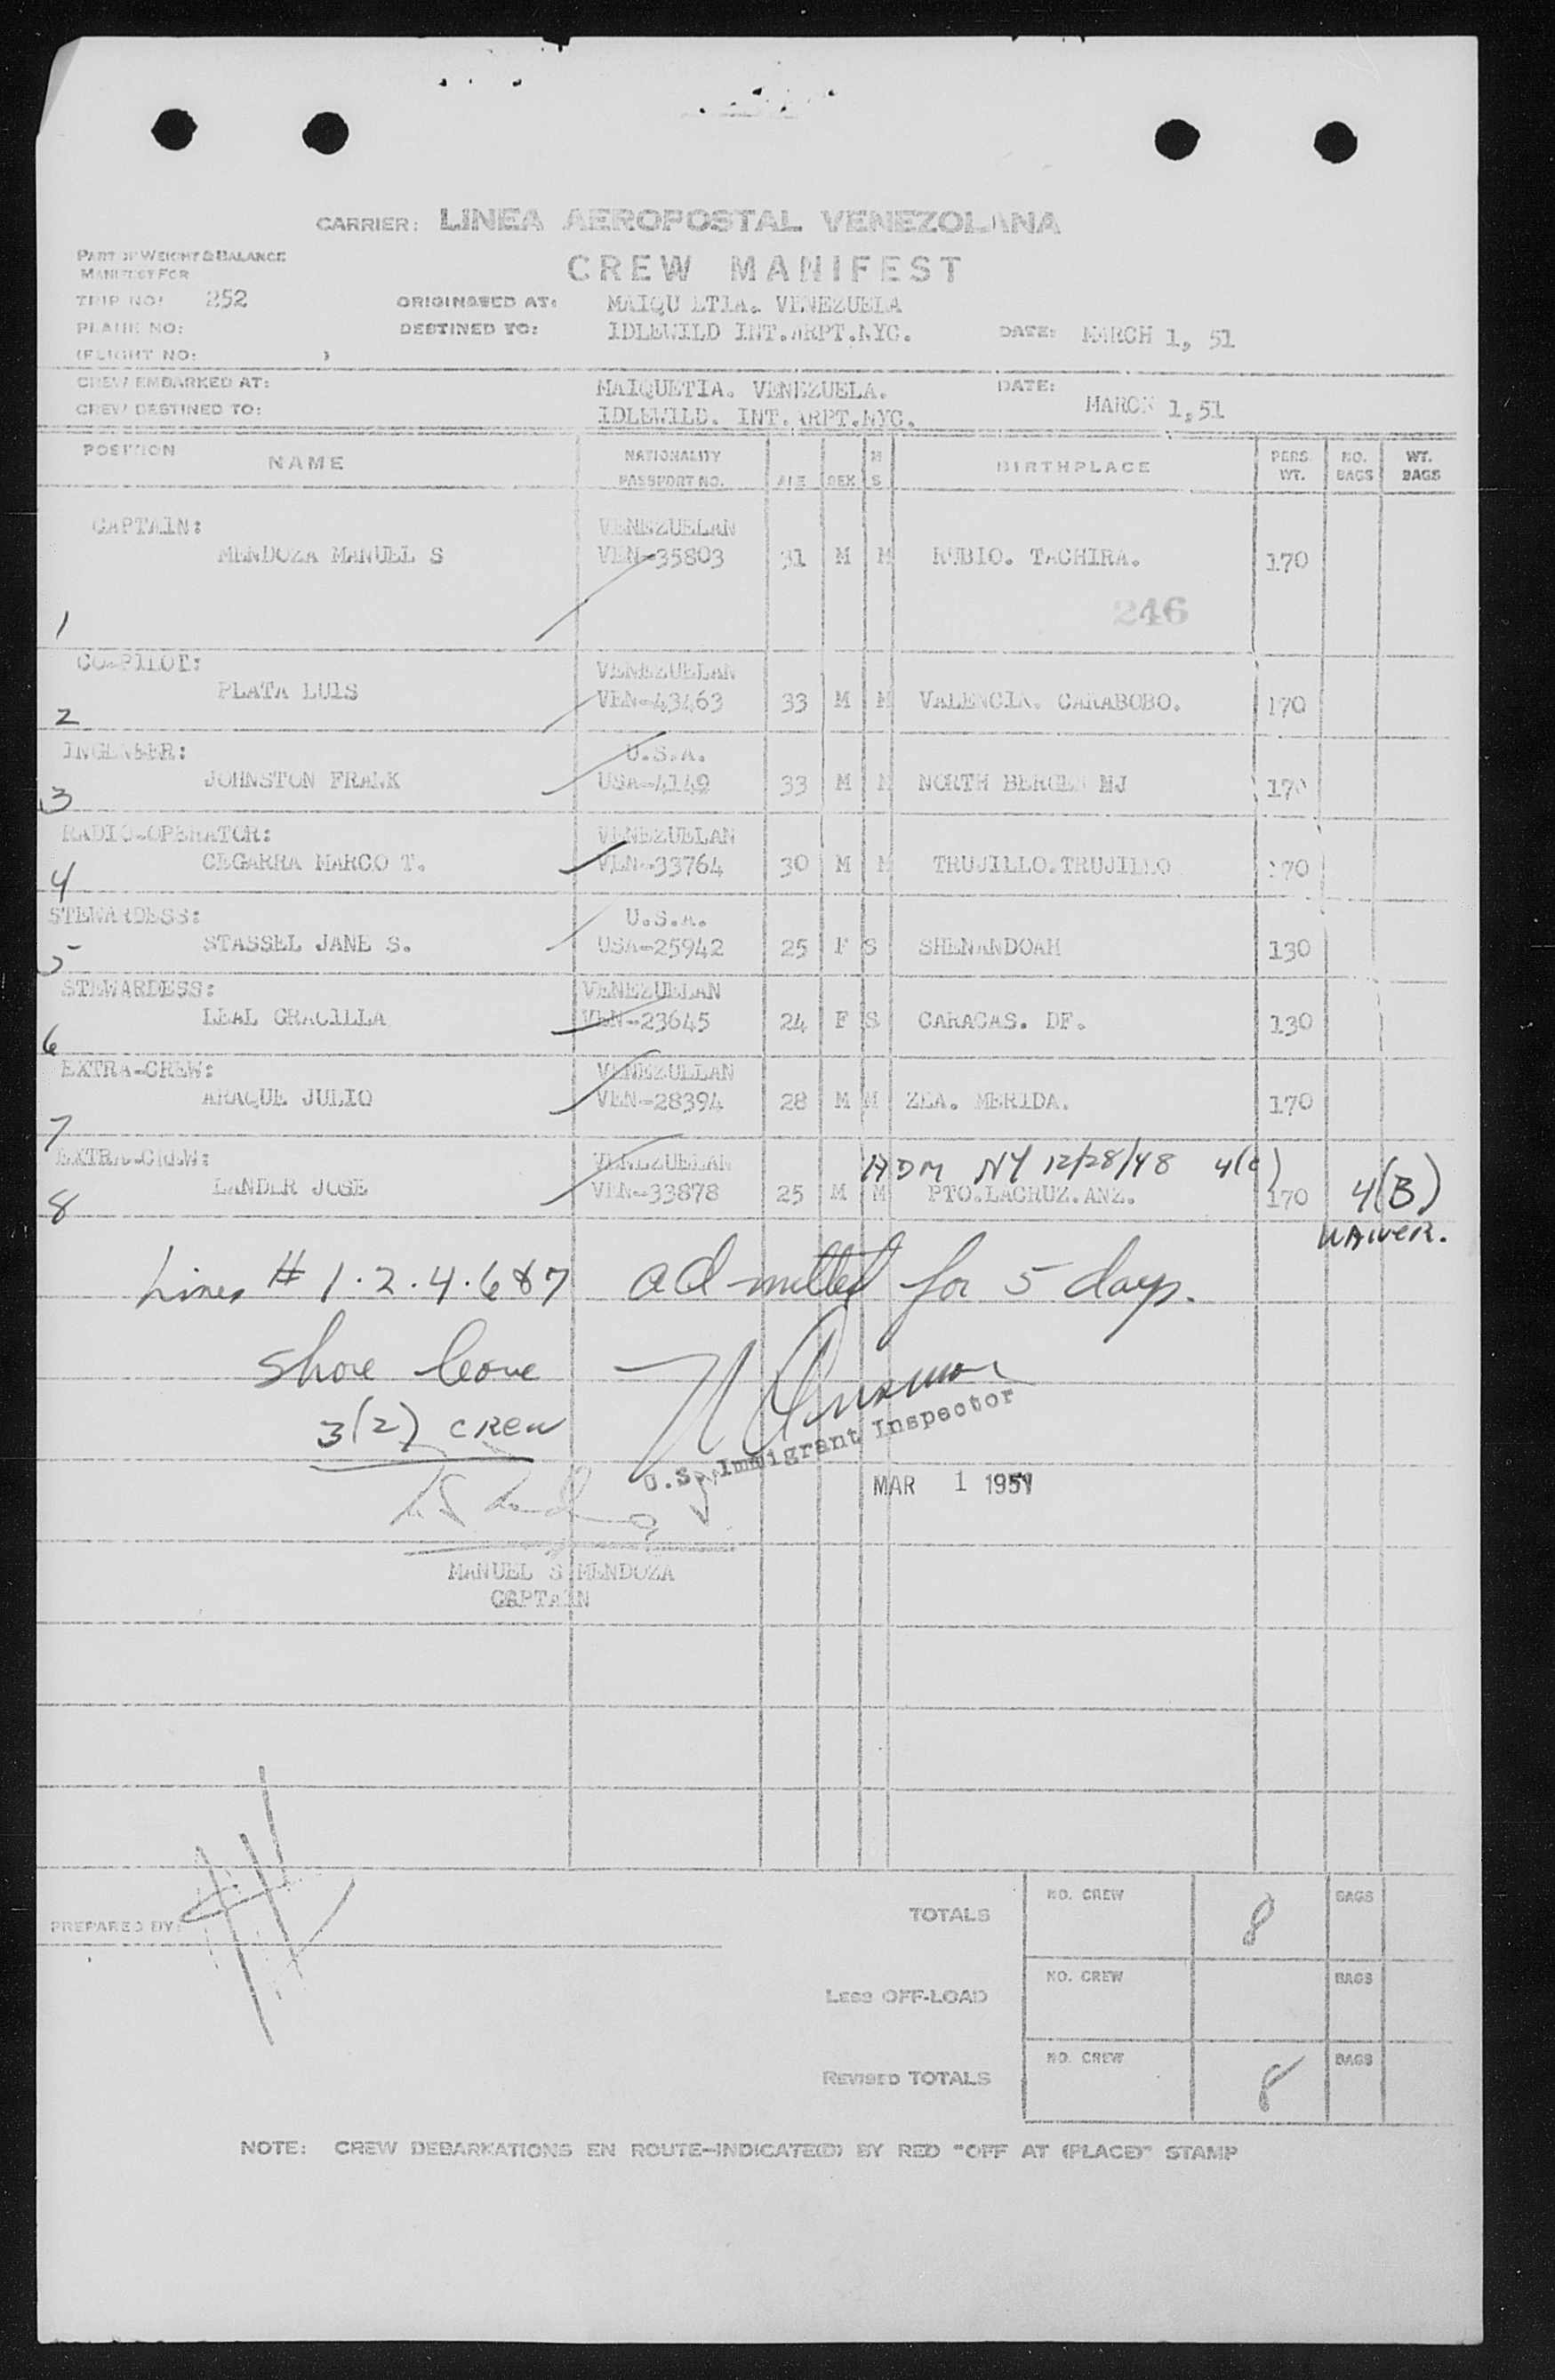 CARRIER: LINEA AEROPOSTAL VENEZOLANA
PART OF WEIGHT & BALANCE
MANIFEST FOR
CREW MANIFEST
TRIP NO: 252 ORIGINATED AT: MAIQU ETIA. VENEZUELA
PLANE NO: DESTINED TO: IDLEWILD INT.ARPT.NYC. DATE: MARCH 1, 51
(FLIGHT NO: )
CREW EMBARKED AT: MAIQUETIA. VENEZUELA. DATE:
CREW DESTINED TO: IDLEWILD. INT.ARPT.NYC. MARCH 1,51
POSITION NAME NATIONALITY PASSPORT NO. AGE SEX M S BIRTHPLACE PERS. WT. NO. BAGS WT. BAGS
CAPTAIN: VENEZUELAN
MENDOZA MANUEL S VEN-35803 31 M M RUBIO. TACHIRA. 170
246
1
CO-PILOT: VENEZUELAN
PLATA LUIS VEN-43463 33 M M VALENCIA. CARABOBO. 170
2
INGENEER: U.S.A.
JOHNSTON FRANK USA-4149 33 M M NORTH BERGEN NJ 170
3
RADIO-OPERATOR: VENEZUELAN
CEGARRA MARCO T. VEN-33764 30 M M TRUJILLO.TRUJILLO 170
4
STEWARDESS: U.S.A.
STASSEL JANE S. USA-25942 25 F S SHENANDOAH 130
5
STEWARDESS: VENEZUELAN
LEAL GRACILLA VEN-23645 24 F S CARACAS. DF. 130
6
EXTRA-CREW: VENEZUELAN
ARAQUE JULIO VEN-28394 28 M M ZEA. MERIDA. 170
7
EXTRA-CREW: VENEZUELAN ADM NY 12/28/48 4(c)
LANDER JOSE VEN-33878 25 M M PTO.LACRUZ.ANZ. 170 4(B)
8 WAIVER.
Lines # 1.2.4.6&7 admitted for 5 days.
Shore leave
3(2) CREW
U.S. Immigrant Inspector
MAR 1 1951
MANUEL S MENDOZA
CAPTAIN
NO. CREW 8 BAGS
PREPARED BY: TOTALS
NO. CREW BAGS
LESS OFF-LOAD
NO. CREW 8 BAGS
REVISED TOTALS
NOTE: CREW DEBARKATIONS EN ROUTE-INDICATE(D) BY RED "OFF AT (PLACE)" STAMP